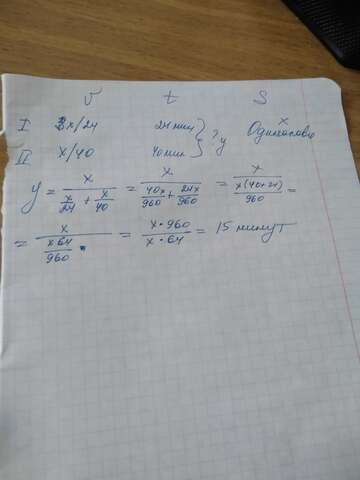 v t S
I x/24 24 мин } ? y x Одинаковы
II x/40 40 мин
y = x / (x/24 + x/40) = x / (40x/960 + 24x/960) = x / (x(40+24)/960) =
= x / (x64/960) = x·960 / x·64 = 15 минут